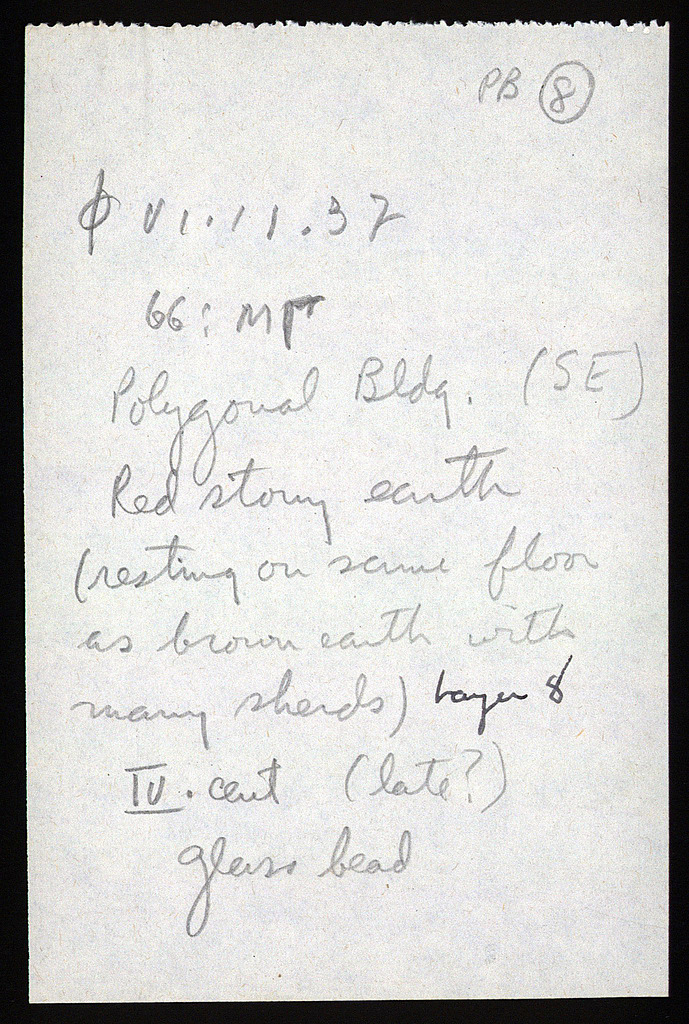 PB 8
φ VI.11.37
66: ΜΓ
Polygonal Bldg. (SE)
Red stony earth
(resting on same floor
as brown earth with
many sherds) Layer 8
IV. cent (late?)
glass bead